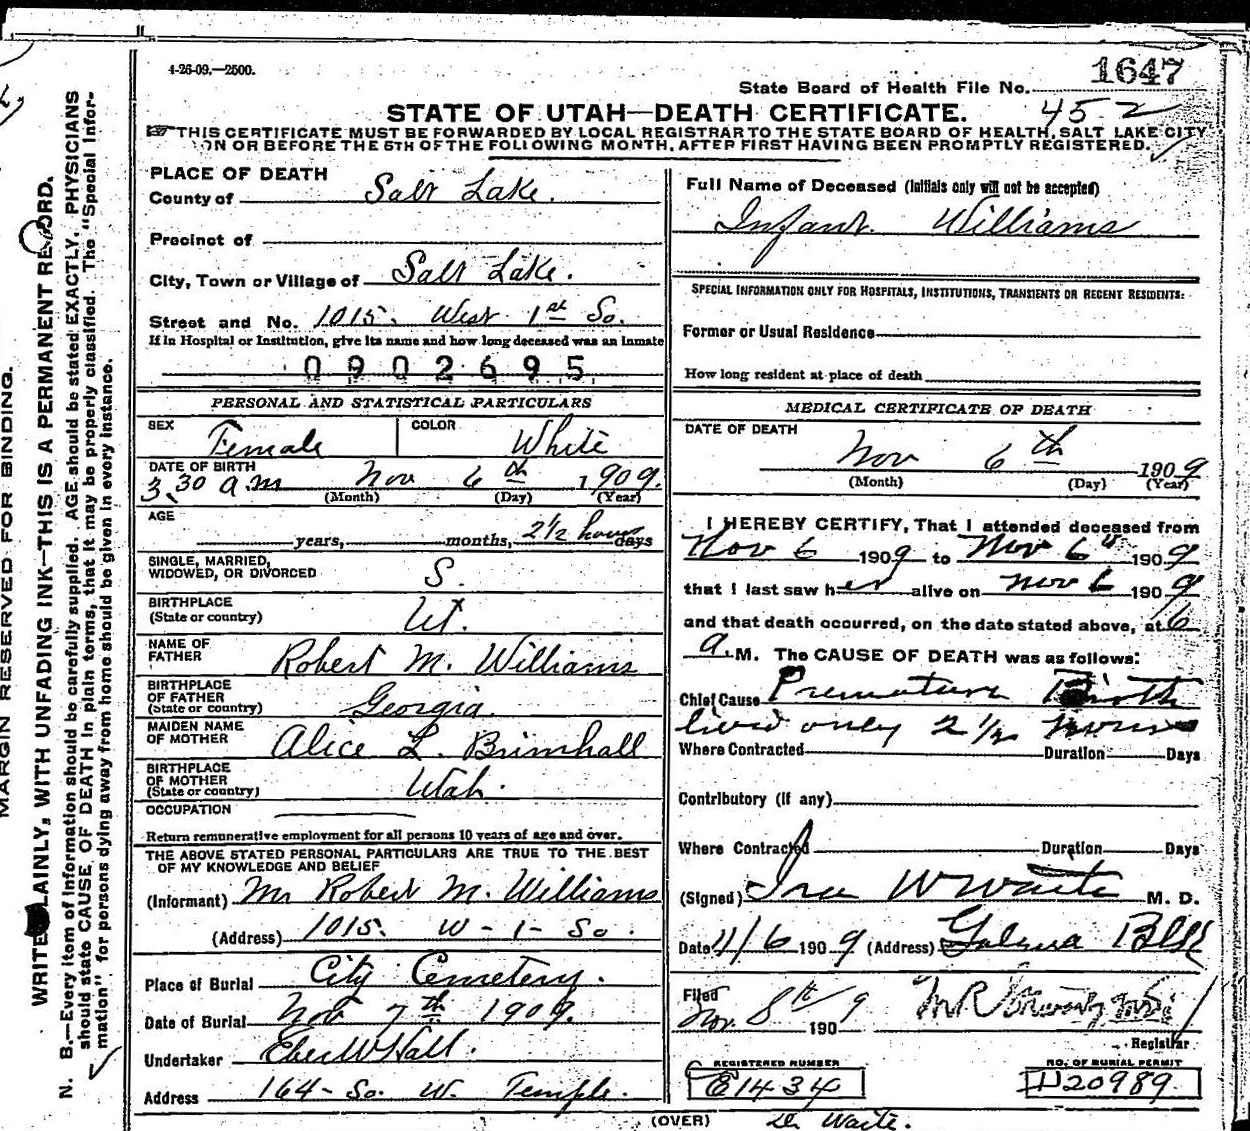 4-26-09.—2500.
1647
State Board of Health File No.
STATE OF UTAH—DEATH CERTIFICATE. 452
THIS CERTIFICATE MUST BE FORWARDED BY LOCAL REGISTRAR TO THE STATE BOARD OF HEALTH, SALT LAKE CITY
ON OR BEFORE THE 5TH OF THE FOLLOWING MONTH, AFTER FIRST HAVING BEEN PROMPTLY REGISTERED.
PLACE OF DEATH
County of Salt Lake.
Precinct of
City, Town or Village of Salt Lake.
Street and No. 1015. West 1st So.
If in Hospital or Institution, give its name and how long deceased was an inmate
0902695
PERSONAL AND STATISTICAL PARTICULARS
SEX Female COLOR White
DATE OF BIRTH
3.30 a.m Nov 6th 1909.
(Month) (Day) (Year)
AGE
years, months, 2½ hours days
SINGLE, MARRIED,
WIDOWED, OR DIVORCED S.
BIRTHPLACE
(State or country) Ut.
NAME OF
FATHER Robert M. Williams
BIRTHPLACE
OF FATHER
(State or country) Georgia.
MAIDEN NAME
OF MOTHER Alice L. Brimhall
BIRTHPLACE
OF MOTHER
(State or country) Utah.
OCCUPATION
Return remunerative employment for all persons 10 years of age and over.
THE ABOVE STATED PERSONAL PARTICULARS ARE TRUE TO THE BEST
OF MY KNOWLEDGE AND BELIEF
(Informant) Mr Robert M. Williams
(Address) 1015. W-1-So.
Place of Burial City Cemetery.
Date of Burial Nov 7th 1909.
Undertaker Eber W Hall.
Address 164-So. W. Temple.
Full Name of Deceased (Initials only will not be accepted)
Infant. Williams
SPECIAL INFORMATION ONLY FOR HOSPITALS, INSTITUTIONS, TRANSIENTS OR RECENT RESIDENTS:
Former or Usual Residence
How long resident at place of death
MEDICAL CERTIFICATE OF DEATH
DATE OF DEATH
Nov 6th 1909
(Month) (Day) (Year)
I HEREBY CERTIFY, That I attended deceased from
Nov 6 1909 to Nov 6th 1909
that I last saw her alive on Nov 6 1909
and that death occurred, on the date stated above, at 6
a.M. The CAUSE OF DEATH was as follows:
Chief Cause Premature Birth
lived only 2½ hours
Where Contracted Duration Days
Contributory (if any)
Where Contracted Duration Days
(Signed) Ira W Waite M. D.
Date 11/6 1909 (Address) Galena Blk
Filed
Nov. 8th 1909 M R
Registrar
REGISTERED NUMBER
E1434
NO. OF BURIAL PERMIT
D20989.
(OVER) Dr Waite.
MARGIN RESERVED FOR BINDING.
WRITE PLAINLY, WITH UNFADING INK—THIS IS A PERMANENT RECORD.
N. B.—Every item of information should be carefully supplied. AGE should be stated EXACTLY. PHYSICIANS
should state CAUSE OF DEATH in plain terms, that it may be properly classified. The "Special Infor-
mation" for persons dying away from home should be given in every instance.